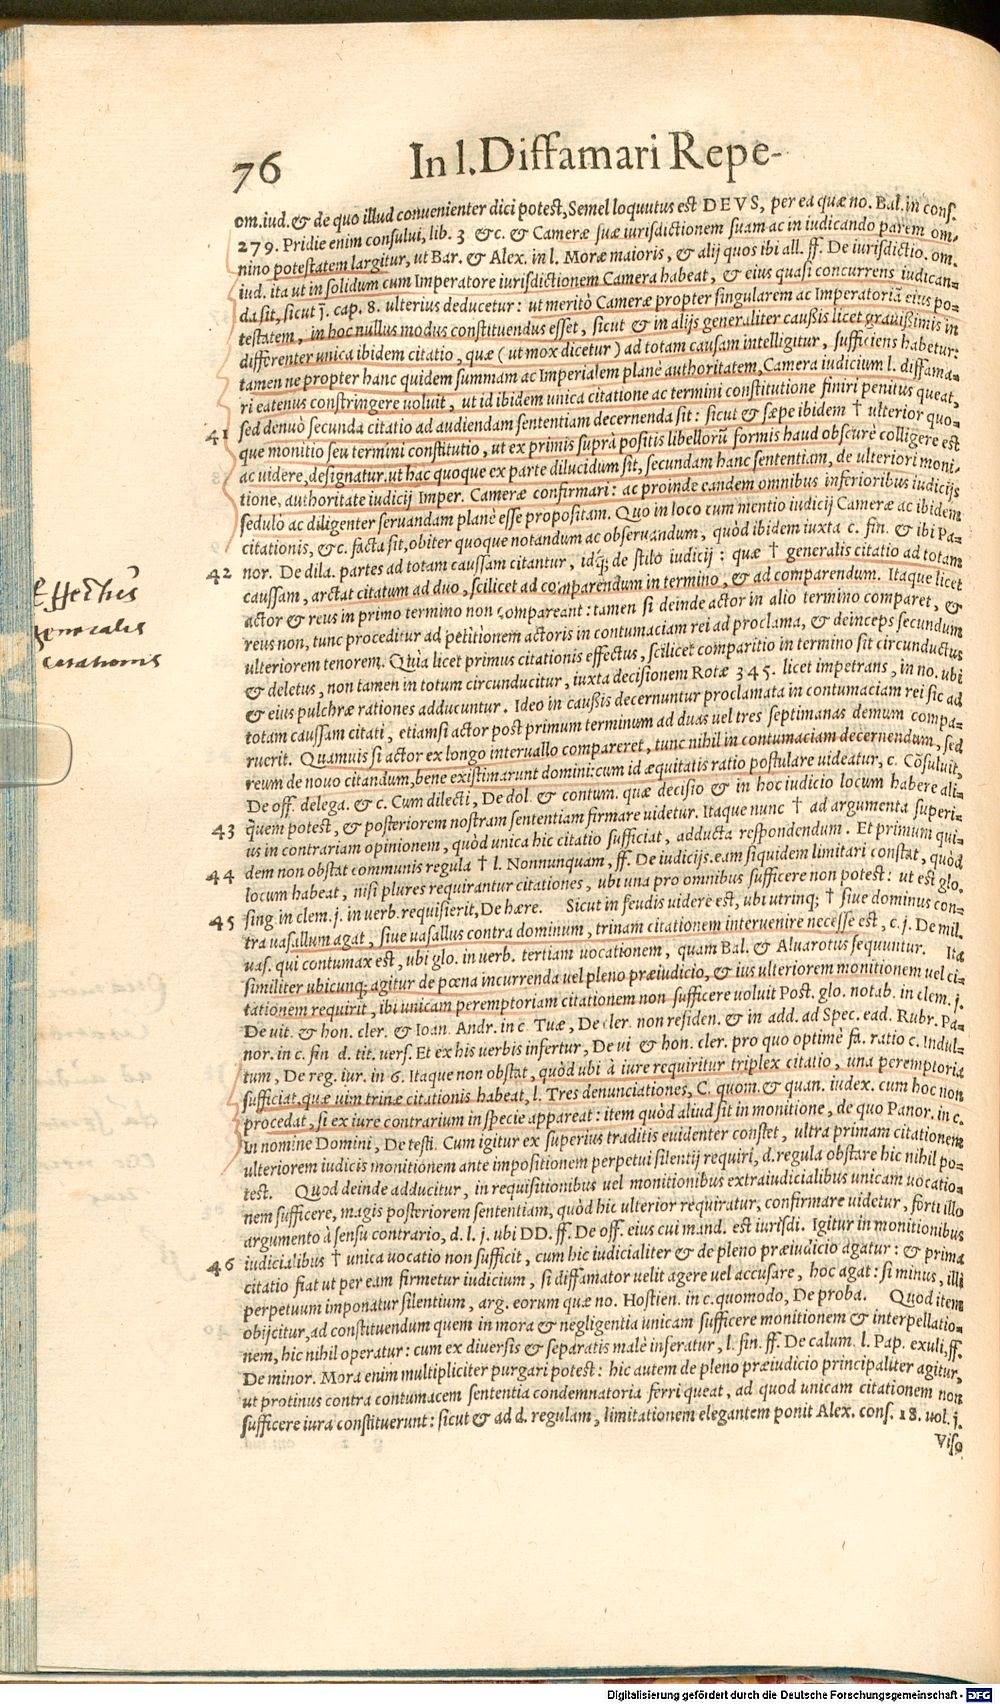 76 In l. Diffamari Repe-
om. iud. & de quo illud convenienter dici potest, Semel loquutus est DEVS, per ea quæ no. Bal. in cons.
279. Pridie enim consului, lib. 3 &c. & Cameræ suæ iurisdictionem suam ac in iudicando parem om-
nino potestatem largitur, ut Bar. & Alex. in l. Moræ maioris, & alij quos ibi all. ff. De iurisdictio. om.
iud. ita ut in solidum cum Imperatore iurisdictionem Camera habeat, & eius quasi concurrens iudican-
da sit, sicut j̄. cap. 8. ulterius deducetur: ut meritò Cameræ propter singularem ac Imperatoriā eius po-
testatem, in hoc nullus modus constituendus esset, sicut & in alijs generaliter caussis licet grauißimis in
differenter unica ibidem citatio, quæ (ut mox dicetur) ad totam causam intelligitur, sufficiens habetur:
tamen ne propter hanc quidem summam ac Imperialem planè authoritatem, Camera iudicium l. diffama-
ri eatenus constringere uoluit, ut id ibidem unica citatione ac termini constitutione finiri penitus queat,
41 sed denuò secunda citatio ad audiendam sententiam decernenda sit: sicut & sæpe ibidem † ulterior quo-
que monitio seu termini constitutio, ut ex primis suprà positis libellorū formis haud obscurè colligere est
ac uidere, designatur. ut hac quoque ex parte dilucidum sit, secundam hanc sententiam, de ulteriori moni-
tione, authoritate iudicij Imper. Cameræ confirmari: ac proinde eandem omnibus inferioribus iudicijs
sedulò ac diligenter seruandam planè esse propositam. Quo in loco cum mentio iudicij Cameræ ac ibidem
citationis, &c. facta sit, obiter quoque notandum ac obseruandum, quòd ibidem iuxta c. fin. & ibi Pa-
42 nor. De dila. partes ad totam caussam citantur, idq́; de stilo iudicij: quæ † generalis citatio ad totam
caussam, arctat citatum ad duo, scilicet ad comparendum in termino, & ad comparendum. Itaque licet
actor & reus in primo termino non compareant: tamen si deinde actor in alio termino comparet, &
reus non, tunc proceditur ad petitionem actoris in contumaciam rei ad proclama, & deinceps secundum
ulteriorem tenorem. Quia licet primus citationis effectus, scilicet comparitio in termino sit circunductus
& deletus, non tamen in totum circunducitur, iuxta decisionem Rotæ 345. licet impetrans, in no. ubi
& eius pulchræ rationes adducuntur. Ideo in caußis decernuntur proclamata in contumaciam rei sic ad
totam caussam citati, etiamsi actor post primum terminum ad duas uel tres septimanas demum compa-
ruerit. Quamuis si actor ex longo interuallo compareret, tunc nihil in contumaciam decernendum, sed
reum de novo citandum, bene existimarunt domini: cum id æquitatis ratio postulare uideatur, c. Cōsuluit,
De off. delega. & c. Cum dilecti, De dol. & contum. quæ decisio & in hoc iudicio locum habere ali-
43 quem potest, & posteriorem nostram sententiam firmare uidetur. Itaque nunc † ad argumenta superi-
us in contrariam opinionem, quòd unica hic citatio sufficiat, adducta respondendum. Et primum qui-
44 dem non obstat communis regula † l. Nonnunquam, ff. De iudicijs. eam siquidem limitari constat, quòd
locum habeat, nisi plures requirantur citationes, ubi una pro omnibus sufficere non potest: ut est glo.
45 sing. in clem. j. in verb. requisierit, De hære. Sicut in feudis uidere est, ubi utrinq; † siue dominus con-
tra uasallum agat, siue uasallus contra dominum, trinam citationem interuenire necesse est, c. j. De mil.
uas. qui contumax est, ubi glo. in verb. tertiam vocationem, quam Bal. & Aluarotus sequuntur. Ita
similiter ubicunq; agitur de pœna incurrenda vel pleno præiudicio, & ius ulteriorem monitionem vel ci-
tationem requirit, ibi unicam peremptoriam citationem non sufficere voluit Post. glo. notab. in clem. j.
De vit. & hon. cler. & Ioan. Andr. in c. Tuæ, De cler. non residen. & in add. ad Spec. ead. Rubr. Pa-
nor. in c. fin d. tit. vers. Et ex his verbis infertur, De vi & hon. cler. pro quo optimè fa. ratio c. Indul-
tum, De reg. iur. in 6. Itaque non obstat, quòd ubi à iure requiritur triplex citatio, una peremptoria
sufficiat, quæ uim trinæ citationis habeat, l. Tres denunciationes, C. quom. & quan. iudex. cum hoc non
procedat, si ex iure contrarium in specie appareat: item quòd aliud sit in monitione, de quo Panor. in c.
In nomine Domini, De testi. Cum igitur ex superius traditis euidenter constet, ultra primam citationem
ulteriorem iudicis monitionem ante impositionem perpetui silentij requiri, d. regula obstare hic nihil po-
test. Quod deinde adducitur, in requisitionibus vel monitionibus extraiudicialibus unicam uocatio-
nem sufficere, magis posteriorem sententiam, quòd hic ulterior requiratur, confirmare uidetur, forti illo
argumento à sensu contrario, d. l. j. ubi DD. ff. De off. eius cui mand. est iurisdi. Igitur in monitionibus
46 iudicialibus † unica uocatio non sufficit, cum hic iudicialiter & de pleno præiudicio agatur: & prima
citatio fiat ut per eam firmetur iudicium, si diffamator uelit agere uel accusare, hoc agat: si minus, illi
perpetuum imponatur silentium, arg. eorum quæ no. Hostien. in c. quomodo, De proba. Quod item
obijcitur, ad constituendum quem in mora & negligentia unicam sufficere monitionem & interpellatio-
nem, hic nihil operatur: cum ex diversis & separatis malè inferatur, l. fin. ff. De calum. l. Pap. exuli, ff.
De minor. Mora enim multipliciter purgari potest: hic autem de pleno præiudicio principaliter agitur,
ut protinus contra contumacem sententia condemnatoria ferri queat, ad quod unicam citationem non
sufficere iura constituerunt: sicut & ad d. regulam, limitationem elegantem ponit Alex. cons. 18. uol. j.
Viso
Effectus
generalis
citationis
Digitalisierung gefördert durch die Deutsche Forschungsgemeinschaft - DFG